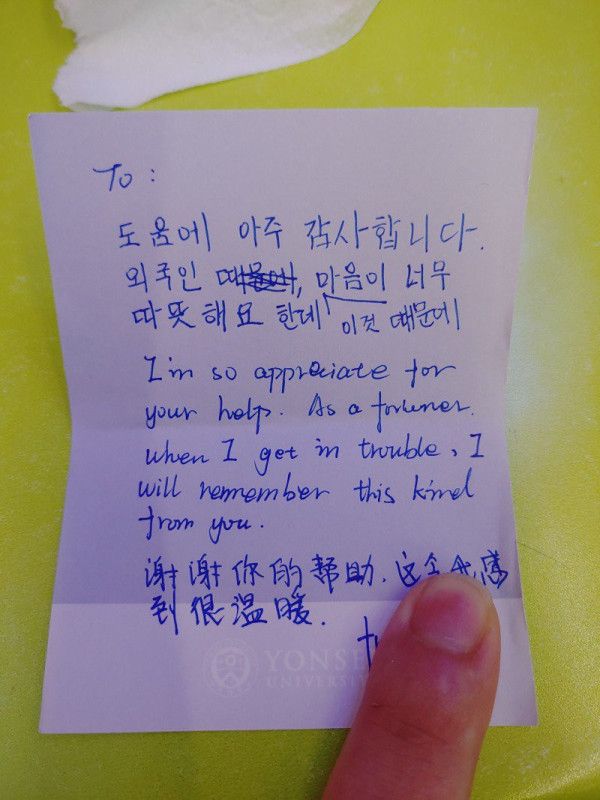 To :
도움에 아주 감사합니다.
외국인 마음이 너무
따뜻해요 한데 이것 때문에
I'm so appreciate for
your help. As a foriuner.
when I get in trouble, I
will remember this kind
from you.
谢谢你的帮助. 这 我感
到很温暖.
YONSE
UNIVERSI